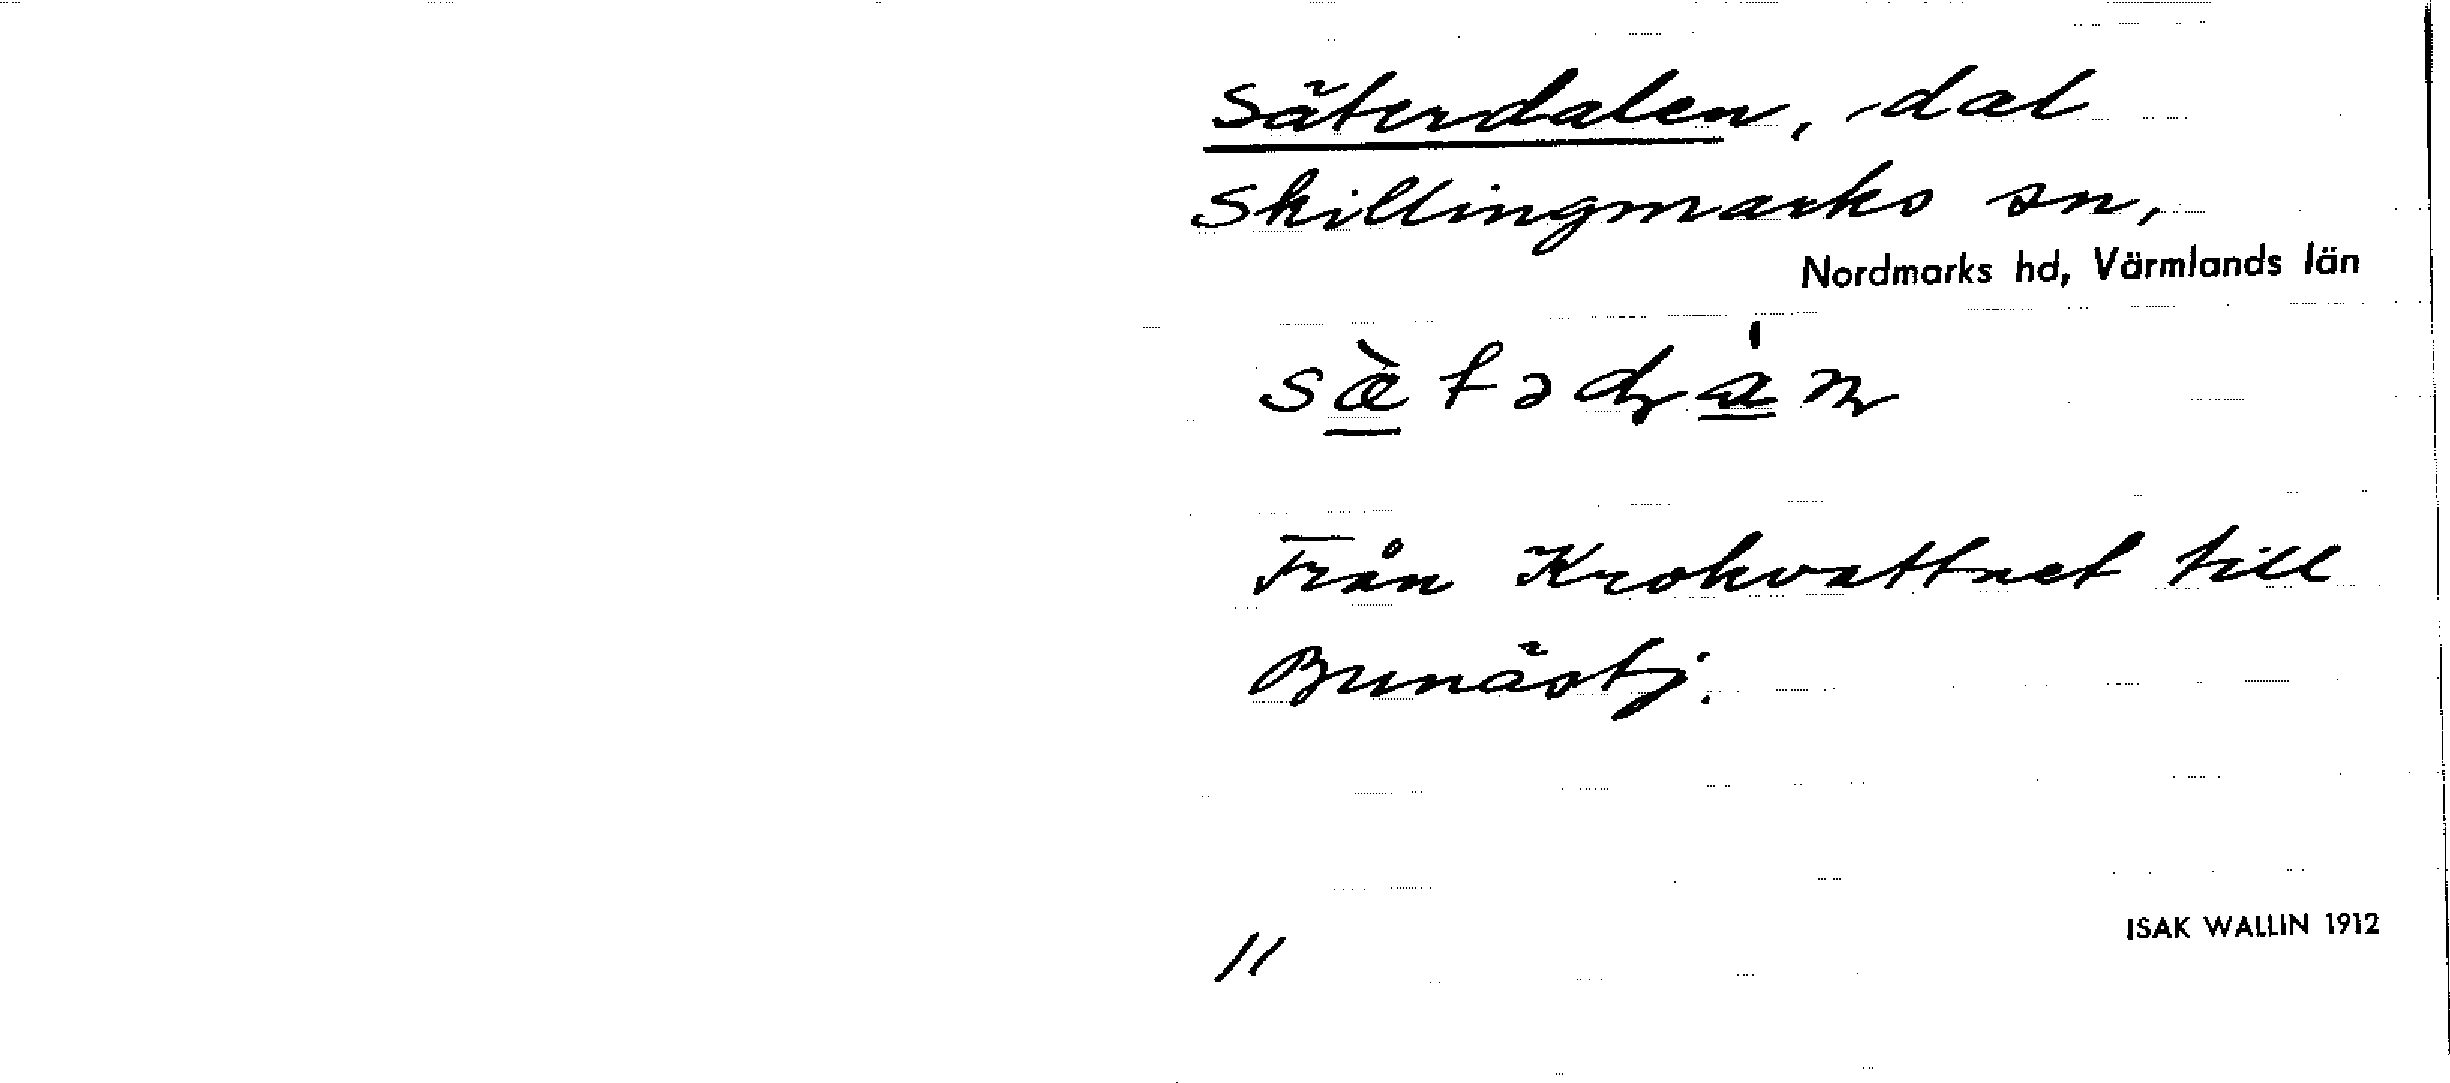 Säterdalen, dal
Skillingmarks sn,
Nordmarks hd, Värmlands län
Från Krokvattnet till
Bunästj.
11
ISAK WALLIN 1912